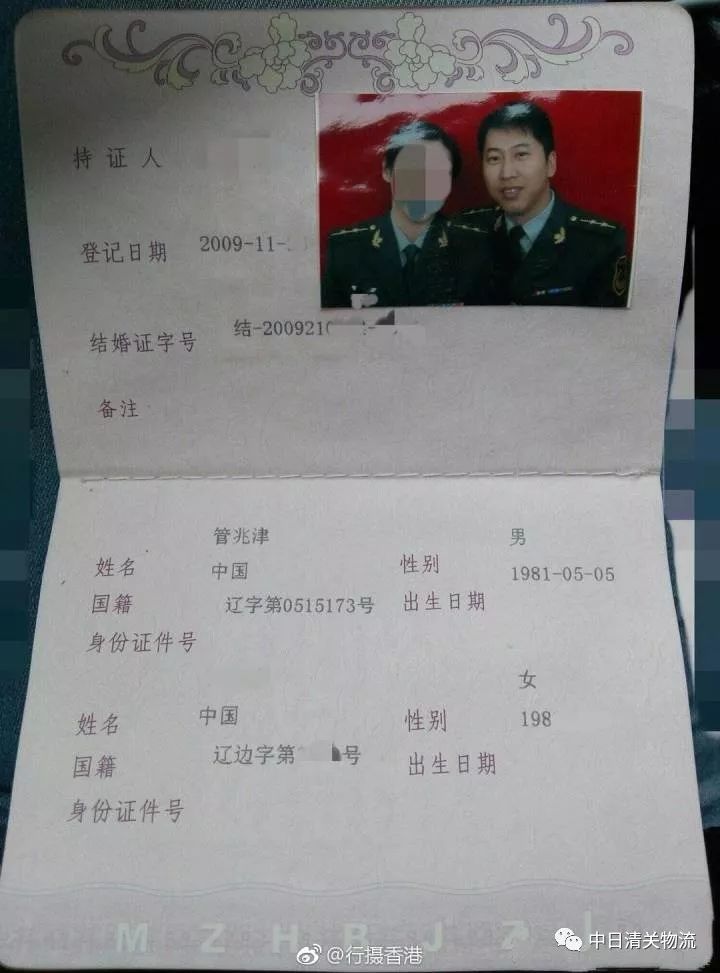 持证人
登记日期 2009-11-
结婚证字号 结-2009210
备注
管兆津 男
姓名 中国 性别 1981-05-05
国籍 辽字第0515173号 出生日期
身份证件号
女
姓名 中国 性别 198
国籍 辽边字第 号 出生日期
身份证件号
M Z H B J Z
@行摄香港
中日清关物流